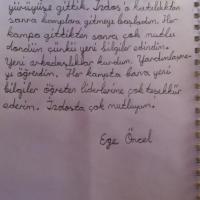 yürüyüşe gittik. İzdos'a katıldıktan
sonra kamplara gitmeye başladım. Her
kampa gittikten sonra çok mutlu
döndüm çünkü yeni bilgiler edindim.
Yeni arkadaşlıklar kurdum. Yardımlaşma-
yı öğrendim. Her kampta bana yeni
bilgiler öğreten liderlerime çok teşekkür
ederim. İzdosta çok mutluyum.
Ege Öncel